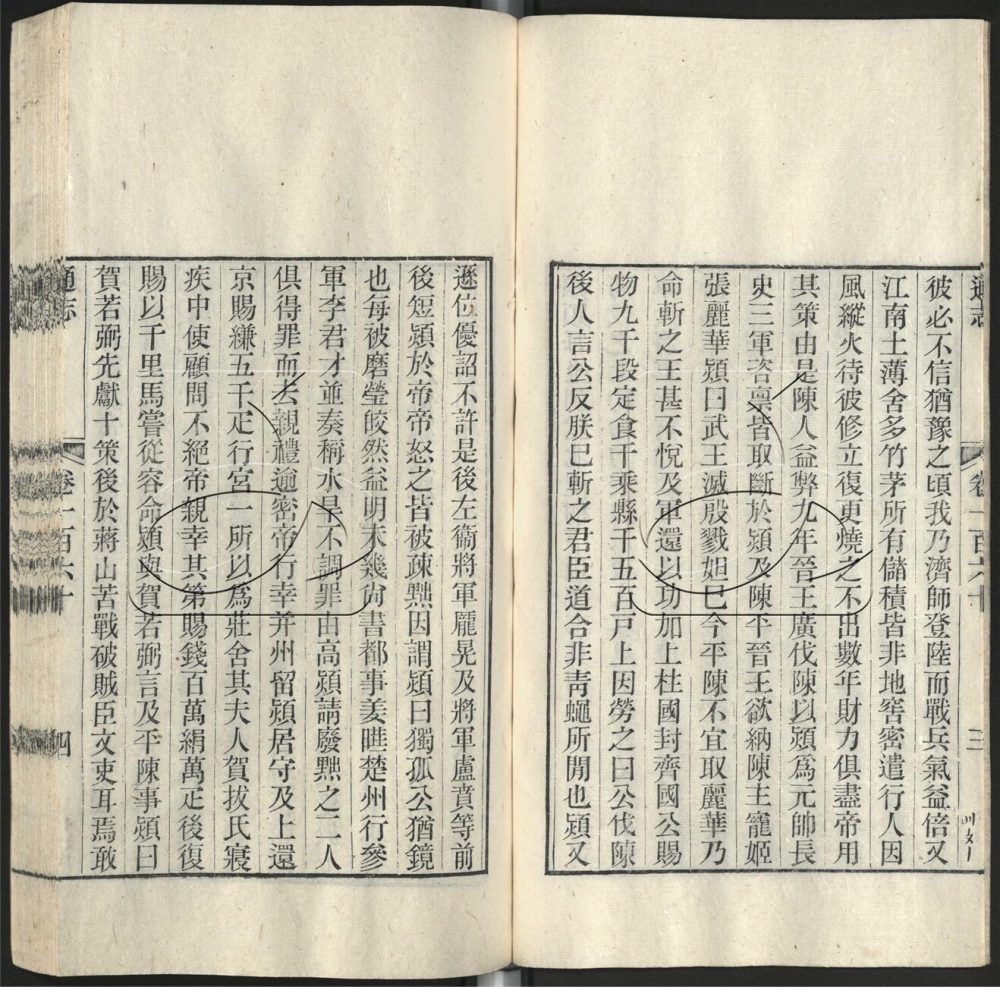 通志
卷一百六十
三
彼必不信猶豫之頃我乃濟師登陸而戰兵氣益倍又
江南土薄舍多竹茅所有儲積皆非地窖密遣行人因
風縱火待彼修立復更燒之不出數年財力俱盡帝用
其策由是陳人益弊九年晉王廣伐陳以熲為元帥長
史三軍咨稟皆取斷於熲及陳平晉王欲納陳主寵姬
張麗華熲曰武王滅殷戮妲巳今平陳不宜取麗華乃
命斬之王甚不悅及軍還以功加上柱國封齊國公賜
物九千段定食千乘縣千五百戸上因勞之曰公伐陳
後人言公反朕巳斬之君臣道合非靑蠅所閒也熲又
遜位優詔不許是後左衞將軍龐晃及將軍盧賁等前
後短熲於帝帝怒之皆被疎黜因謂熲曰獨孤公猶鏡
也每被磨瑩皎然益明未幾尙書都事姜曄楚州行參
軍李君才並奏稱水旱不調罪由高熲請廢黜之二人
俱得罪而去親禮逾密帝行幸并州留熲居守及上還
京賜縑五千疋行宮一所以為莊舍其夫人賀拔氏寢
疾中使顧問不絕帝親幸其第賜錢百萬絹萬疋後復
賜以千里馬嘗從容命熲與賀若弼言及平陳事熲曰
賀若弼先獻十策後於蔣山苦戰破賊臣文吏耳焉敢
通志
卷一百六十
四